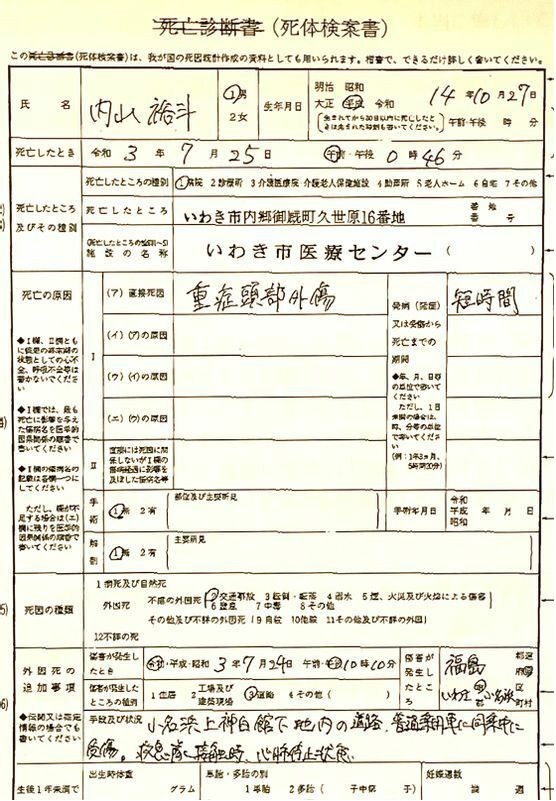 死亡診断書(死体検案書)
この死亡診断書(死体検案書)は、我が国の死因統計作成の資料としても用いられます。楷書で、できるだけ詳しく書いてください。
氏 名 内山 裕斗 1男 2女 生年月日 明治 昭和 大正 平成 令和 14年10月27日
生まれてから30日以内に死亡したときは生まれた時刻も書いてください。 午前・午後 時 分
死亡したとき 令和 3年 7月 25日 午前・午後 0時46分
死亡したところ及びその種別
死亡したところの種別 1病院 2診療所 3介護医療院・介護老人保健施設 4助産所 5老人ホーム 6自宅 7その他
死亡したところ いわき市内郷御厩町久世原16番地 番地 番号
(死亡したところの種別1~5) 施設の名称 いわき市医療センター ( )
死亡の原因
◆Ⅰ欄、Ⅱ欄ともに疾患の終末期の状態としての心不全、呼吸不全等は書かないでください
◆Ⅰ欄では、最も死亡に影響を与えた傷病名を医学的因果関係の順番で書いてください
◆Ⅰ欄の傷病名の記載は各欄一つにしてください
ただし、欄が不足する場合は(エ)欄に残りを医学的因果関係の順番で書いてください
Ⅰ
(ア)直接死因 重症頭部外傷
(イ)(ア)の原因
(ウ)(イ)の原因
(エ)(ウ)の原因
発病(発症)又は受傷から死亡までの期間 短時間
◆年、月、日等の単位で書いてください
ただし、1日未満の場合は、時、分等の単位で書いてください
(例:1年3ヵ月、5時間20分)
Ⅱ 直接には死因に関係しないがⅠ欄の傷病経過に影響を及ぼした傷病名等
手術 1無 2有 部位及び主要所見 手術年月日 令和 平成 昭和 年 月 日
解剖 1無 2有 主要所見
死因の種類
1病死及び自然死
外因死 不慮の外因死 2交通事故 3転倒・転落 4溺水 5煙、火災及び火焔による傷害
6窒息 7中毒 8その他
その他及び不詳の外因死 9自殺 10他殺 11その他及び不詳の外因
12不詳の死
外因死の追加事項
傷害が発生したとき 令和・平成・昭和 3年 7月24日 午前・午後 10時10分
傷害が発生したところ 福島 都道府県
傷害が発生したところの種別 1住居 2工場及び建築現場 3道路 4その他( )
いわき 市 区 郡 町村
◆伝聞又は推定情報の場合でも書いてください
手段及び状況 小名浜上神白館下地内の道路、普通乗用車に同乗中に
受傷。救急隊接触時、心肺停止状態。
生後1年未満で
出生時体重 グラム
単胎・多胎の別 1単胎 2多胎( 子中第 子)
妊娠週数 満 週